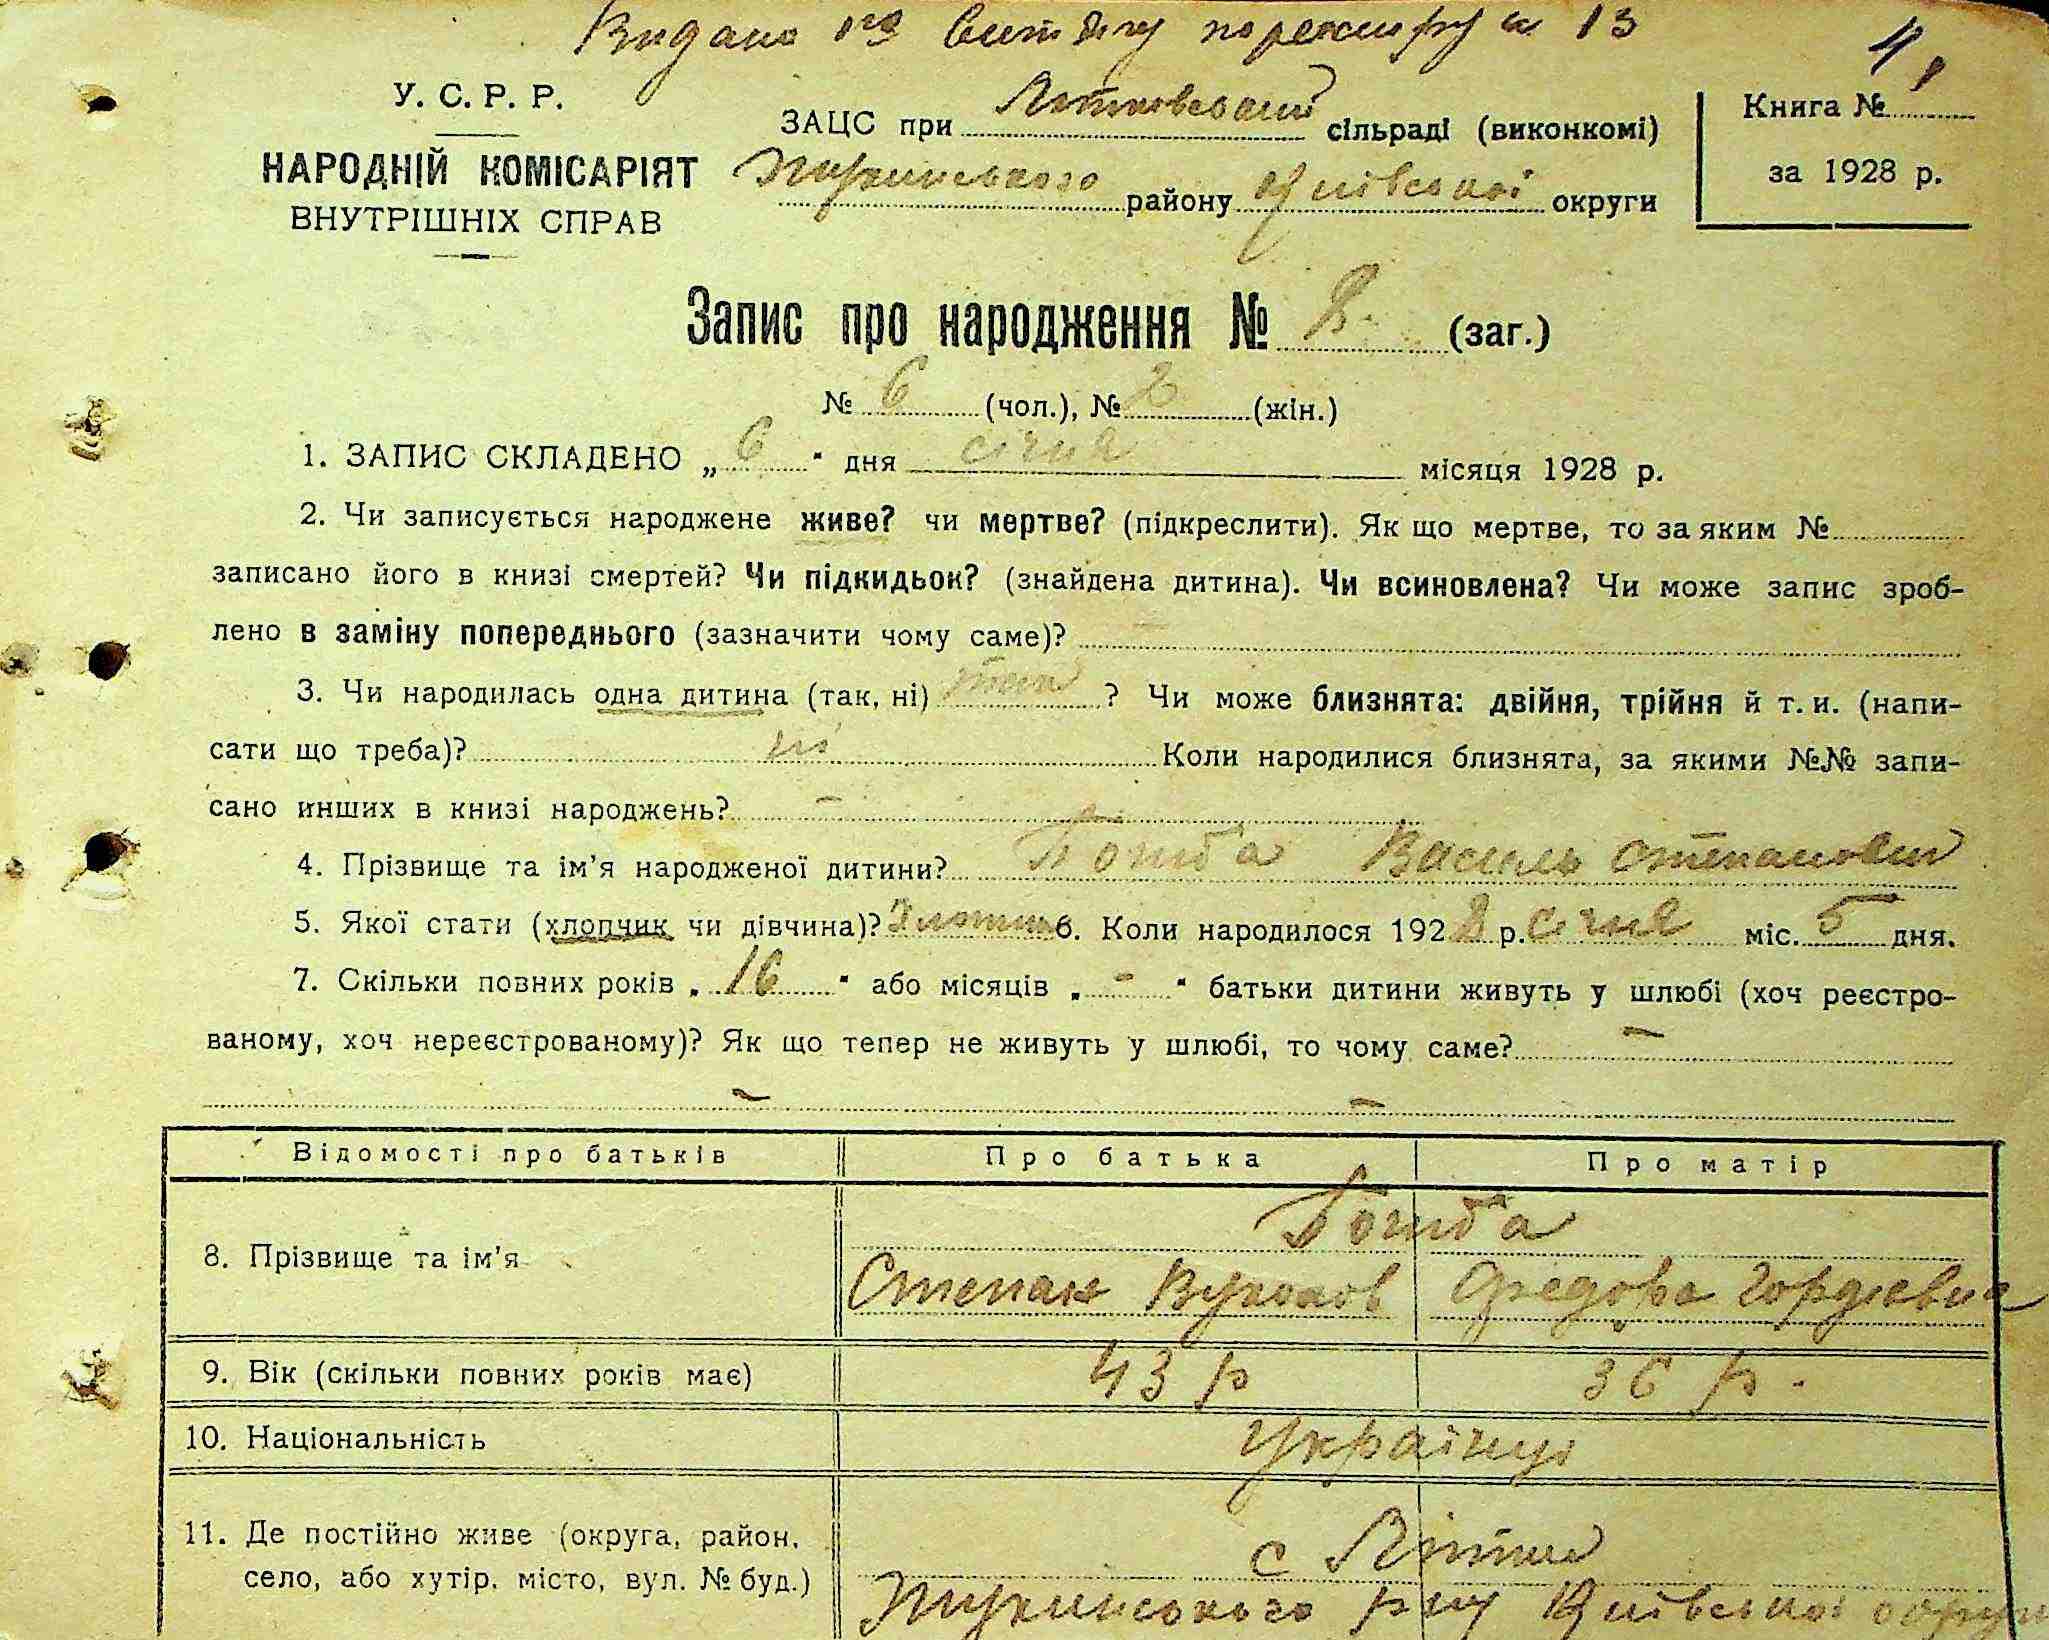 Видано
У. С. Р. Р.
НАРОДНІЙ КОМІСАРІЯТ
ВНУТРІШНІХ СПРАВ
ЗАЦС при Літковській сільраді (виконкомі)
району Київської округи
Книга №
за 1928 р.
Запис про народження № 8. (заг.)
№ 6 (чол.), № 2 (жін.)
1. ЗАПИС СКЛАДЕНО „ 6 " дня січня місяця 1928 р.
2. Чи записується народжене живе? чи мертве? (підкреслити). Як що мертве, то за яким №
записано його в книзі смертей? Чи підкидьок? (знайдена дитина). Чи всиновлена? Чи може запис зроб-
лено в заміну попереднього (зазначити чому саме)? —
3. Чи народилась одна дитина (так, ні) так ? Чи може близнята: двійня, трійня й т. и. (напи-
сати що треба)? ні Коли народилися близнята, за якими №№ запи-
сано инших в книзі народжень? —
4. Прізвище та ім'я народженої дитини? Василь Степанович
5. Якої стати (хлопчик чи дівчина)? 6. Коли народилося 1928 р. січня міс. 5 дня.
7. Скільки повних років „ 16 " або місяців „ - " батьки дитини живуть у шлюбі (хоч реєстро-
ваному, хоч нереєстрованому)? Як що тепер не живуть у шлюбі, то чому саме? —
— —
Відомості про батьків Про батька Про матір
8. Прізвище та ім'я
Степан Федора Гордіевна
9. Вік (скільки повних років має) 43 р 36 р.
10. Національність Українці
11. Де постійно живе (округа, район, село, або хутір, місто, вул. № буд.) с Літки
р ну Київської округи